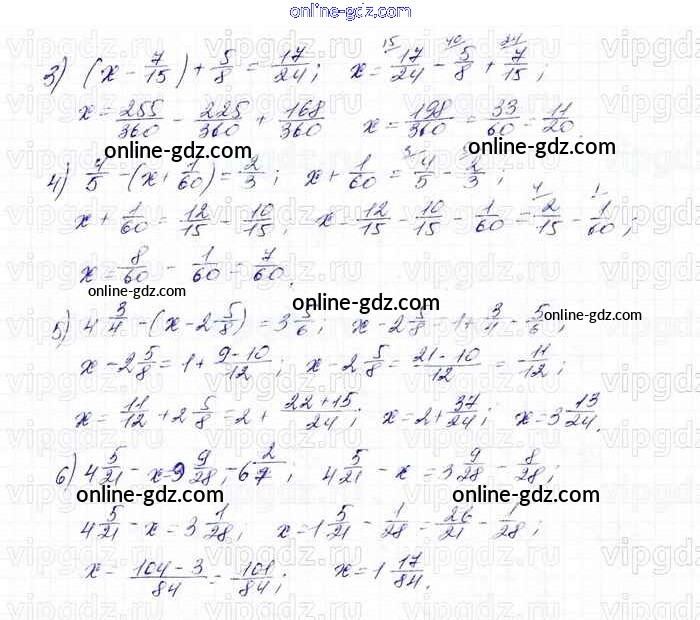 online-gdz.com
3) (x - 7/15) + 5/8 = 17/24; x = 17/24 - 5/8 + 7/15;
x = 255/360 - 225/360 + 168/360 x = 198/360 = 33/60 = 11/20.
online-gdz.com online-gdz.com
4) 4/5 - (x + 1/60) = 2/3; x + 1/60 = 4/5 - 2/3;
x + 1/60 = 12/15 - 10/15; x = 12/15 - 10/15 - 1/60 = 2/15 - 1/60;
x = 8/60 - 1/60 = 7/60.
online-gdz.com online-gdz.com online-gdz.com
5) 4 3/4 - (x - 2 5/8) = 3 5/6; x - 2 5/8 = 1 + 3/4 - 5/6;
x - 2 5/8 = 1 + 9-10/12; x - 2 5/8 = 21-10/12 = 11/12;
x = 11/12 + 2 5/8 = 2 + 22+15/24; x = 2 + 37/24; x = 3 13/24.
6) 4 5/21 - x = 9 9/28 - 6 2/7; 4 5/21 - x = 3 9/28 - 8/28;
online-gdz.com online-gdz.com
4 5/21 - x = 3 1/28; x = 1 5/21 - 1/28 = 26/21 - 1/28;
x = 104-3/84 = 101/84; x = 1 17/84.
online-gdz.com online-gdz.com
vipgdz.ru